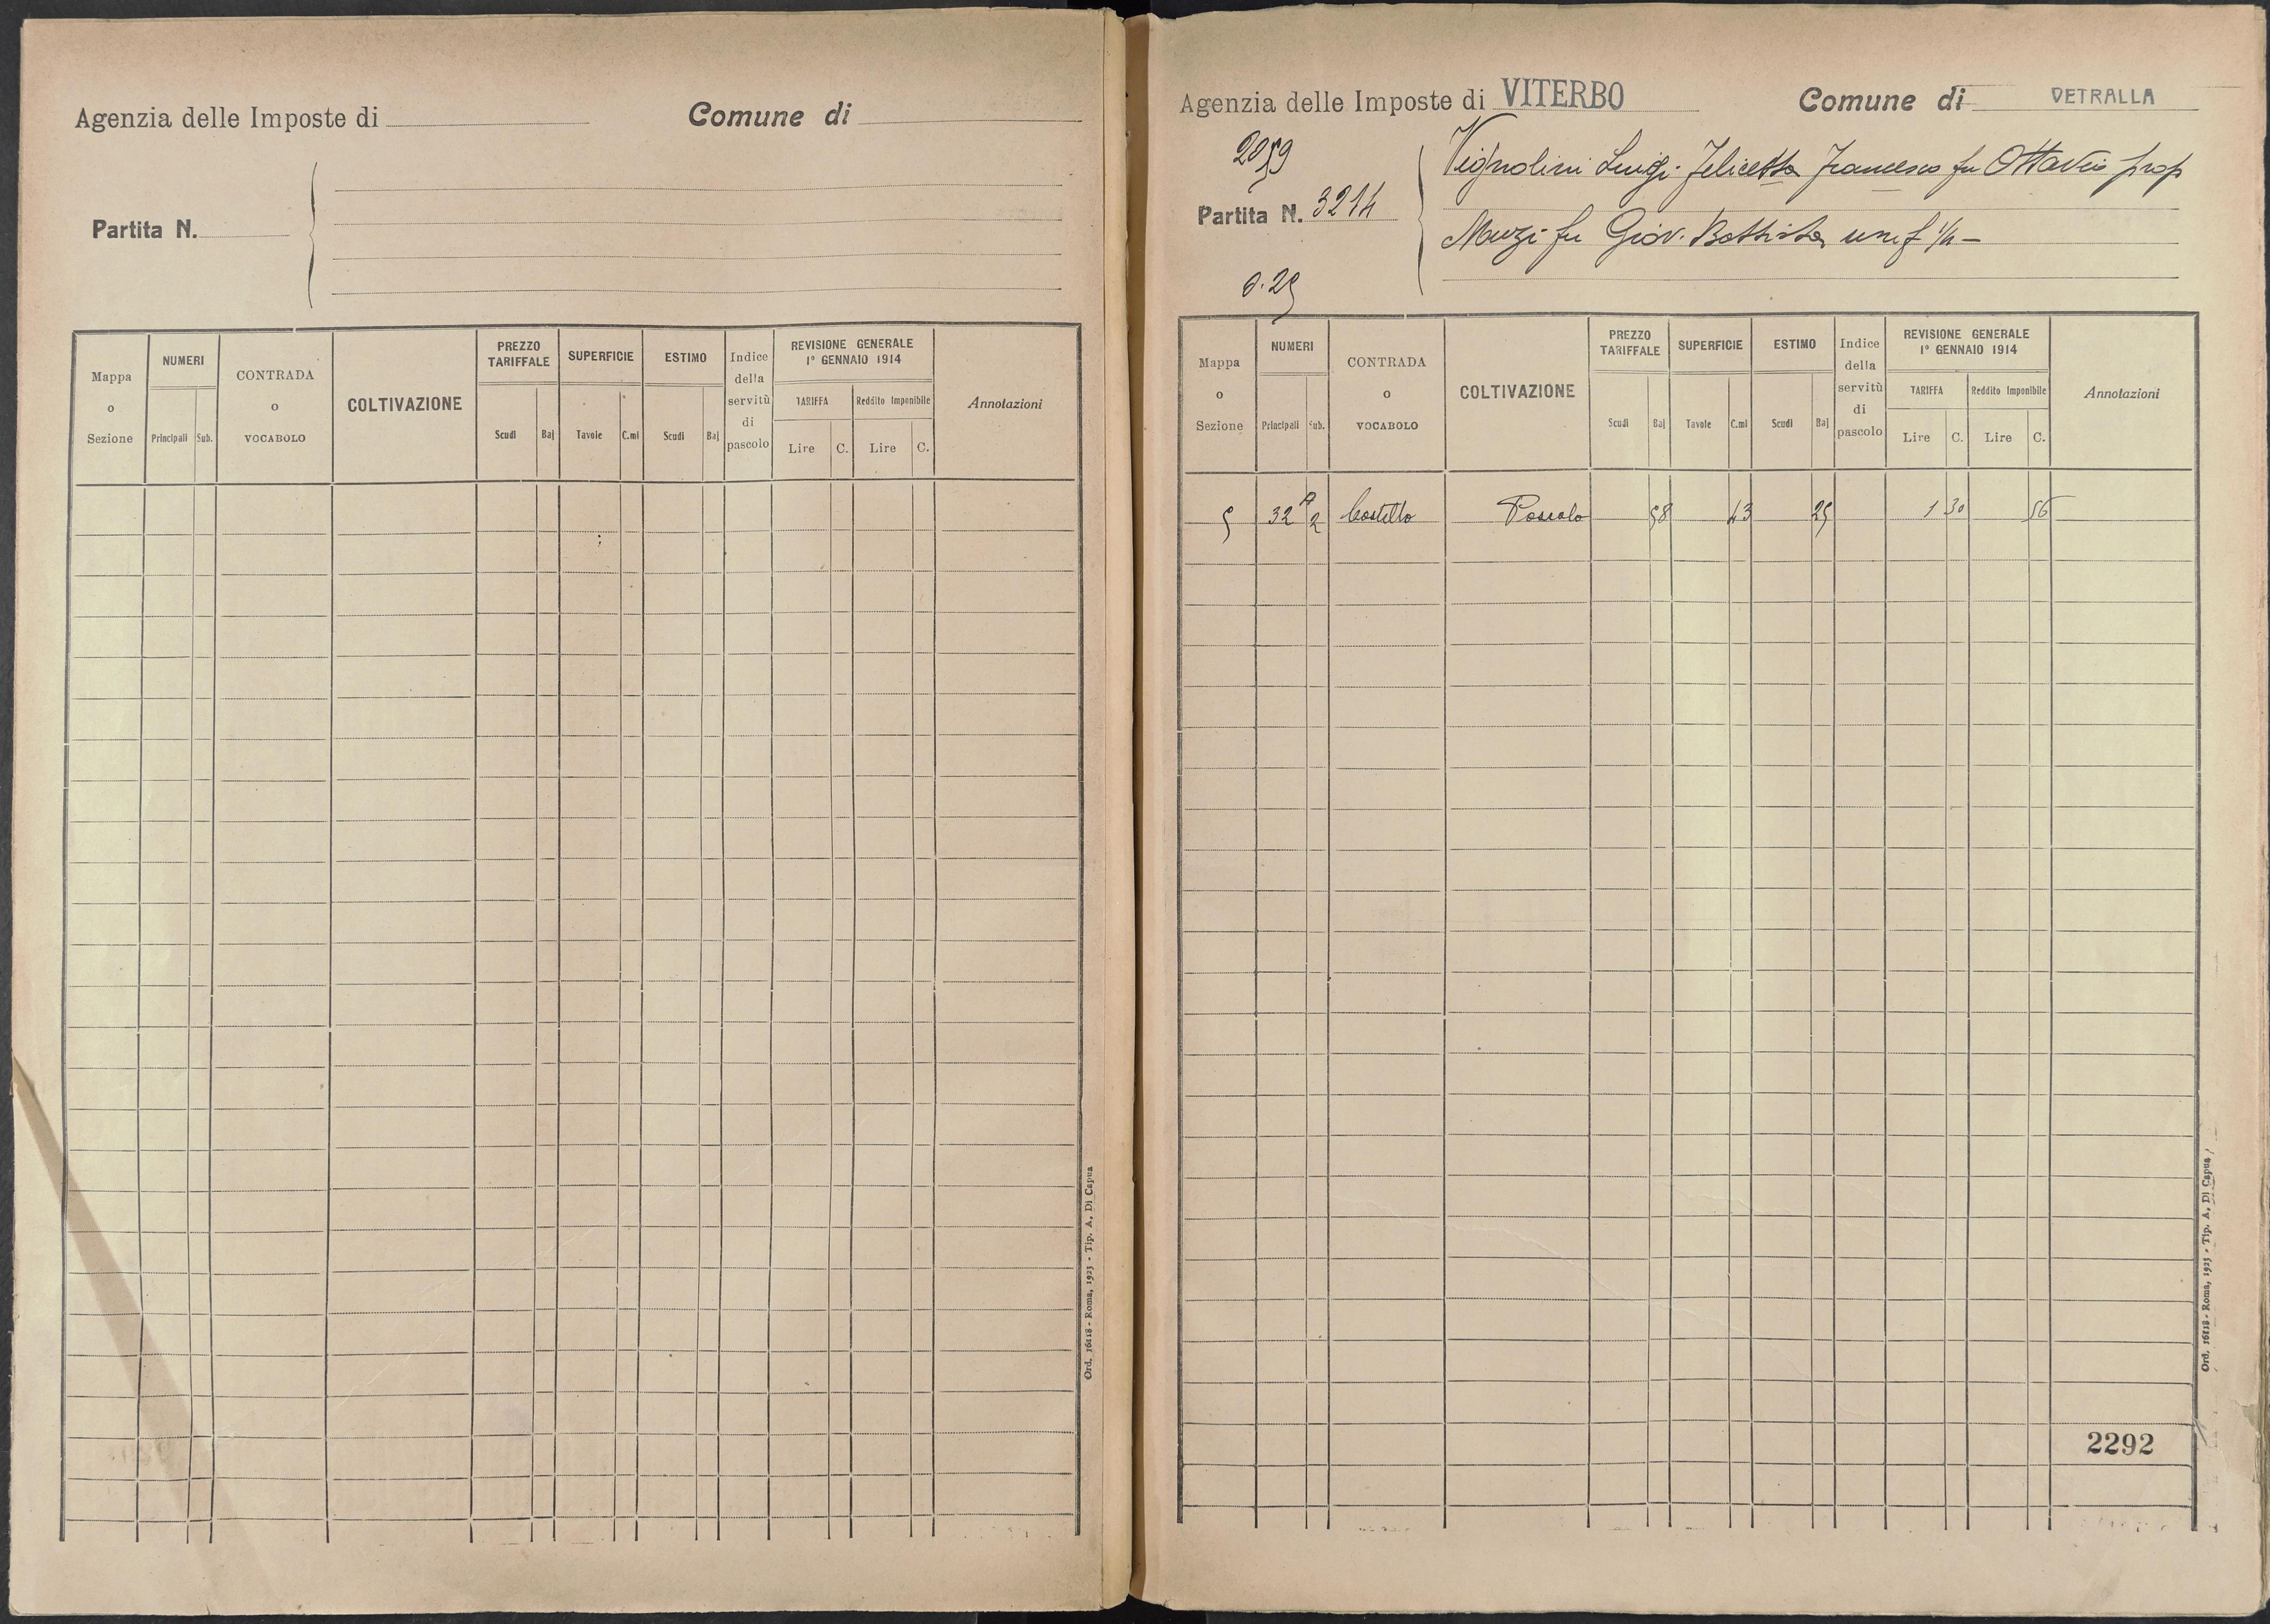 Agenzia delle Imposte di
Comune di
Partita N.
Mappa o Sezione
NUMERI
Principali
Sub.
CONTRADA o VOCABOLO
COLTIVAZIONE
PREZZO TARIFFALE
Scudi
Baj
SUPERFICIE
Tavole
C.mi
ESTIMO
Scudi
Baj
Indice della servitù di pascolo
REVISIONE GENERALE
1° GENNAIO 1914
TARIFFA
Lire
C.
Reddito Imponibile
Lire
C.
Annotazioni
Ord. 16118 - Roma, 1923 - Tip. A. Di Capua
Agenzia delle Imposte di VITERBO
Comune di VETRALLA
2059
Partita N. 3214
0.25
Vignolini Luigi Felicetta Francesco fu Ottavio prop
Muzi fu Giov. Battista usuf 1/4 -
Mappa o Sezione
NUMERI
Principali
Sub.
CONTRADA o VOCABOLO
COLTIVAZIONE
PREZZO TARIFFALE
Scudi
Baj
SUPERFICIE
Tavole
C.mi
ESTIMO
Scudi
Baj
Indice della servitù di pascolo
REVISIONE GENERALE
1° GENNAIO 1914
TARIFFA
Lire
C.
Reddito Imponibile
Lire
C.
Annotazioni
5 32 A 2 Castello Pascolo 58 43 25 1 30 56
2292
Ord. 16118 - Roma, 1923 - Tip. A. Di Capua